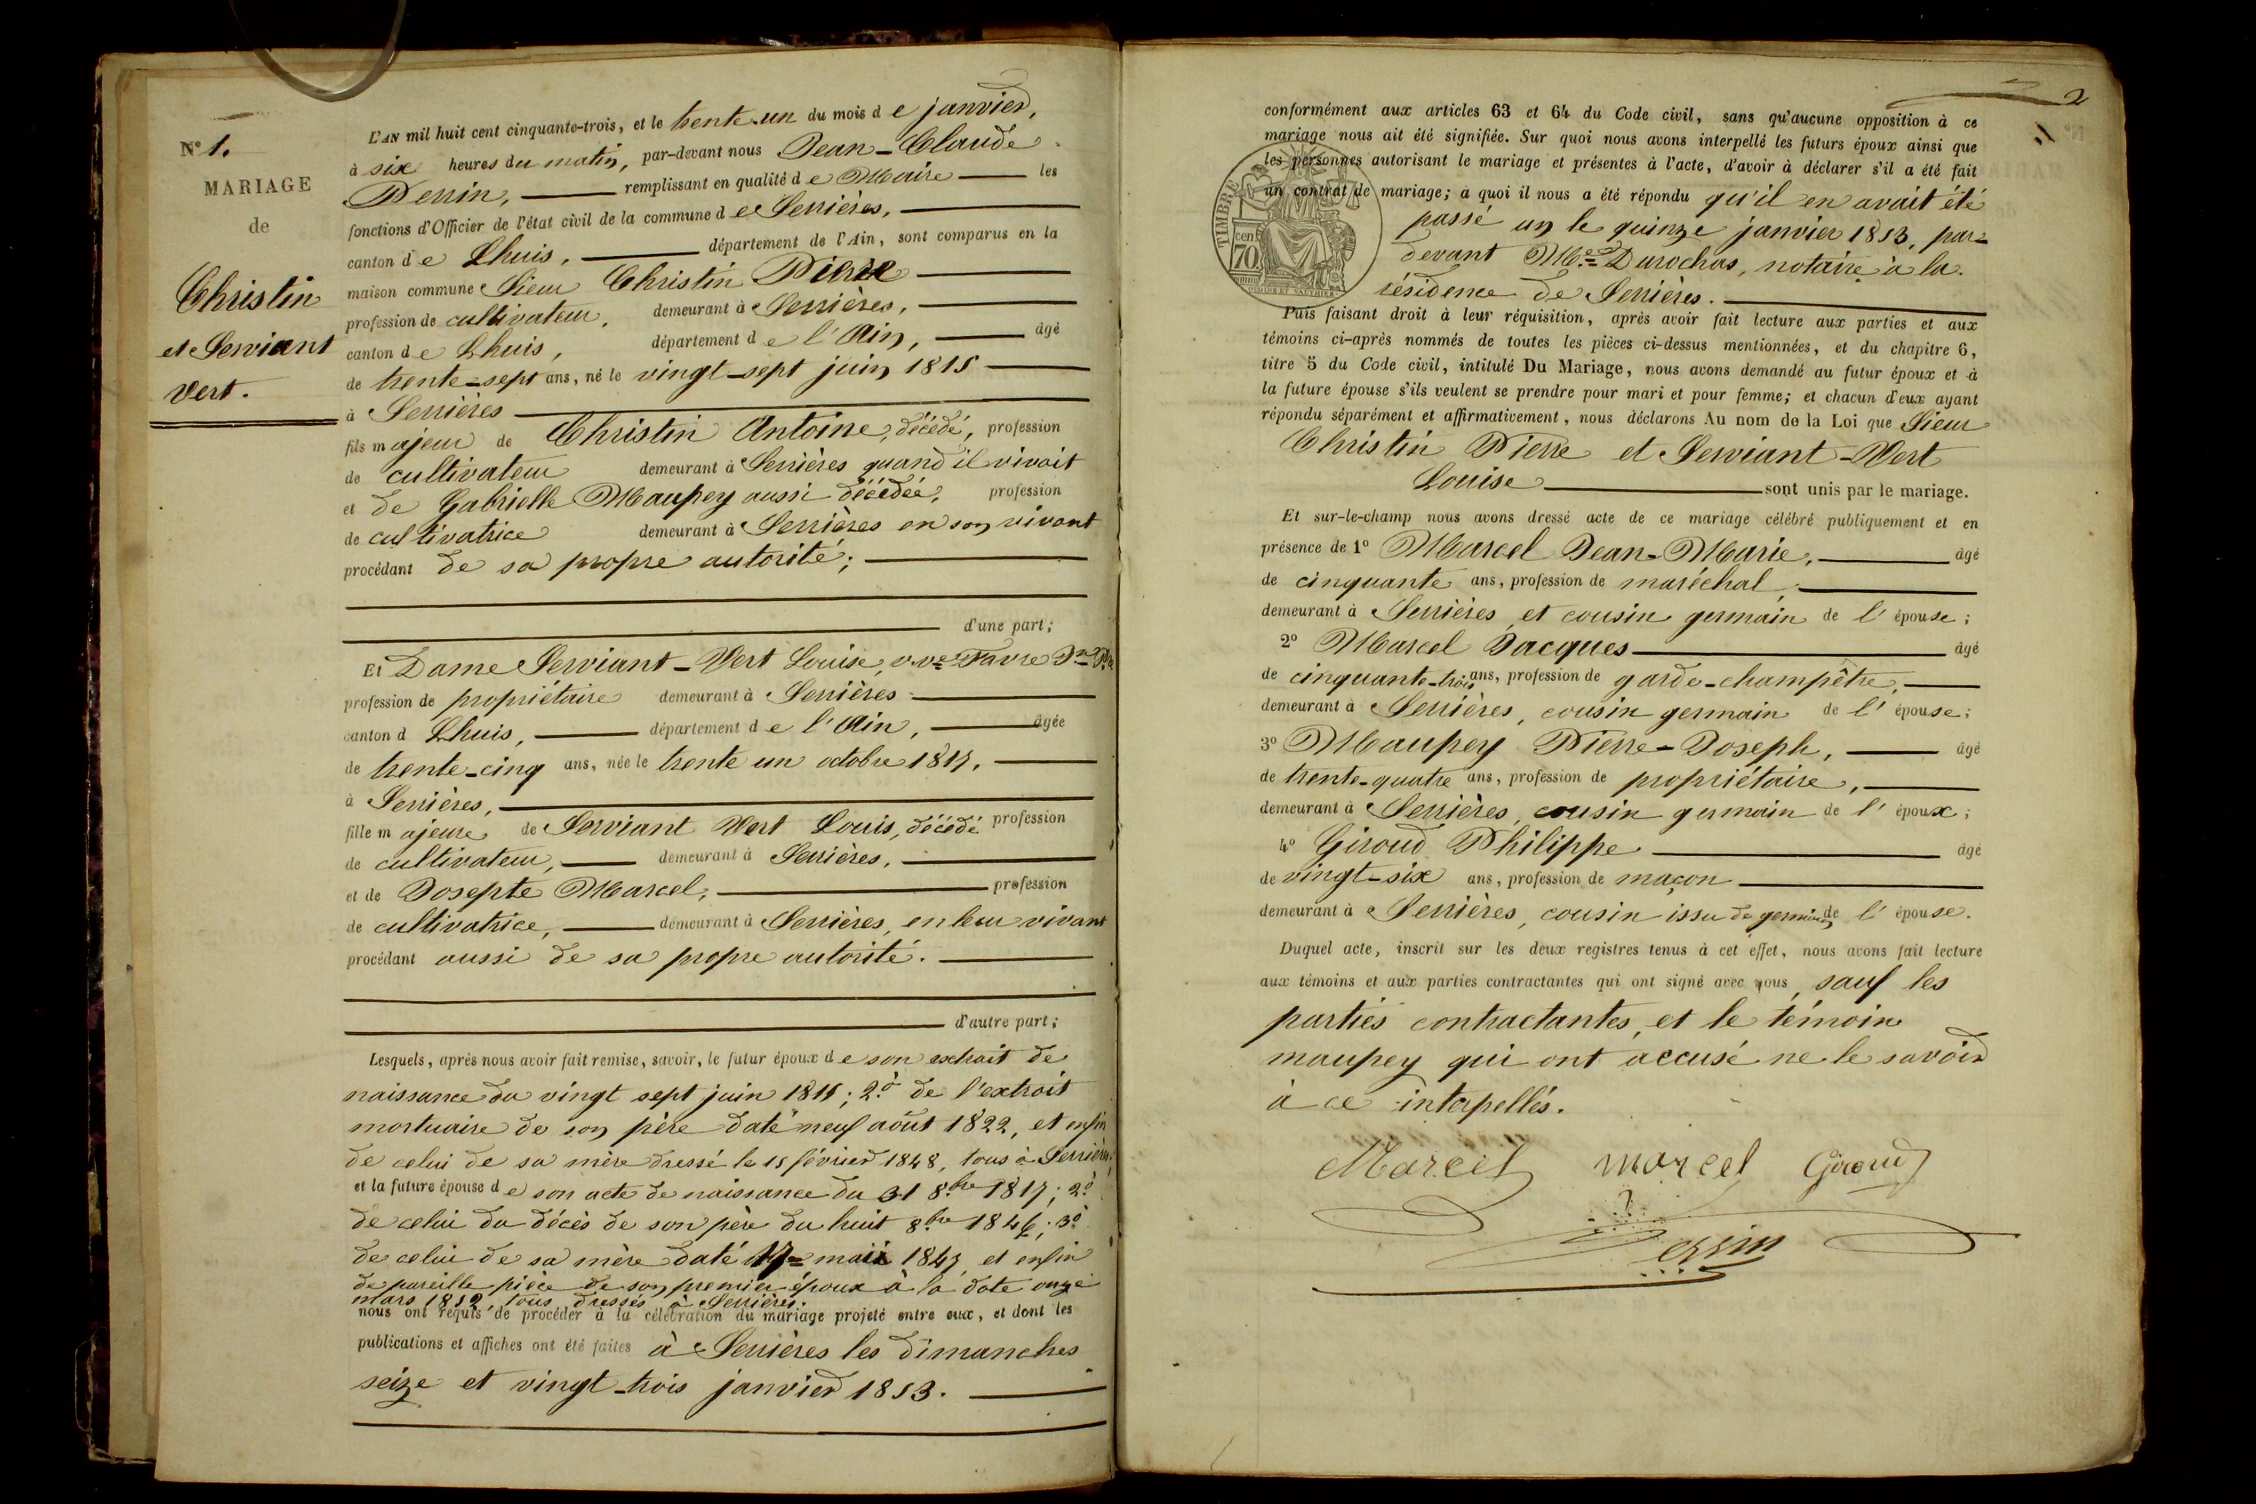 N° 1.
MARIAGE
de
Christin
et Serviant
Vert.
L'AN mil huit cent cinquante-trois, et le trente-un du mois de janvier,
à six heures du matin, par-devant nous Jean-Claude
Perrin, remplissant en qualité de Maire les
fonctions d'Officier de l'état civil de la commune de Serrières,
canton de Lhuis, département de l'Ain, sont comparus en la
maison commune Sieur Christin Pierre
profession de cultivateur, demeurant à Serrières,
canton de Lhuis, département de l'Ain, âgé
de trente-sept ans, né le vingt-sept juin 1815
à Serrières
fils majeur de Christin Antoine, décédé, profession
de cultivateur demeurant à Serrières quand il vivait
et de Gabrielle Maupey aussi décédée, profession
de cultivatrice demeurant à Serrières en son vivant
procédant de sa propre autorité;
d'une part;
Et Dame Serviant-Vert Louise, vve Favre
profession de propriétaire demeurant à Serrières
canton d Lhuis, département de l'Ain, âgée
de trente-cinq ans, née le trente un octobre 1817,
à Serrières,
fille majeure de Serviant Vert Louis, décédé profession
de cultivateur, demeurant à Serrières,
et de Josepte Marcel, profession
de cultivatrice, demeurant à Serrières, en leur vivant
procédant aussi de sa propre autorité.
d'autre part;
Lesquels, après nous avoir fait remise, savoir, le futur époux de son extrait de
naissance du vingt sept juin 1815; 2° de l'extrait
mortuaire de son père daté neuf août 1822, et enfin
de celui de sa mère dressé le 15 février 1848, tous à Serrières,
et la future épouse de son acte de naissance du 31 8.bre 1817; 2°
de celui du décès de son père du huit 8.bre 1846; 3°
de celui de sa mère daté 17 mai 1847, et enfin
de pareille pièce de son premier époux à la date onze
mars 1852, tous dressés à Serrières.
nous ont requis de procéder à la célébration du mariage projeté entre eux, et dont les
publications et affiches ont été faites à Serrières les dimanches
seize et vingt-trois janvier 1853.
2
conformément aux articles 63 et 64 du Code civil, sans qu'aucune opposition à ce
mariage nous ait été signifiée. Sur quoi nous avons interpellé les futurs époux ainsi que
les personnes autorisant le mariage et présentes à l'acte, d'avoir à déclarer s'il a été fait
un contrat de mariage; à quoi il nous a été répondu qu'il en avait été
passé un le quinze janvier 1853, par-
devant Me Durochas, notaire à la
résidence de Serrières.
TIMBRE
cen.
70.
Puis faisant droit à leur réquisition, après avoir fait lecture aux parties et aux
témoins ci-après nommés de toutes les pièces ci-dessus mentionnées, et du chapitre 6,
titre 5 du Code civil, intitulé Du Mariage, nous avons demandé au futur époux et à
la future épouse s'ils veulent se prendre pour mari et pour femme; et chacun d'eux ayant
répondu séparément et affirmativement, nous déclarons Au nom de la Loi que Sieur
Christin Pierre et Serviant-Vert
Louise sont unis par le mariage.
Et sur-le-champ nous avons dressé acte de ce mariage célébré publiquement et en
présence de 1° Marcel Jean-Marie, âgé
de cinquante ans, profession de maréchal,
demeurant à Serrières, et cousin germain de l'épouse;
2° Marcel Jacques âgé
de cinquante-trois ans, profession de garde-champêtre,
demeurant à Serrières, cousin germain de l'épouse;
3° Maupey Pierre-Joseph, âgé
de trente-quatre ans, profession de propriétaire,
demeurant à Serrières, cousin germain de l'époux;
4° Giroud Philippe âgé
de vingt-six ans, profession de maçon
demeurant à Serrières, cousin issu de germain de l'épouse.
Duquel acte, inscrit sur les deux registres tenus à cet effet, nous avons fait lecture
aux témoins et aux parties contractantes qui ont signé avec nous, sauf les
parties contractantes, et le témoin
maupey qui ont accusé ne le savoir
à ce interpellés.
Marcel marcel Giroud
Perrin